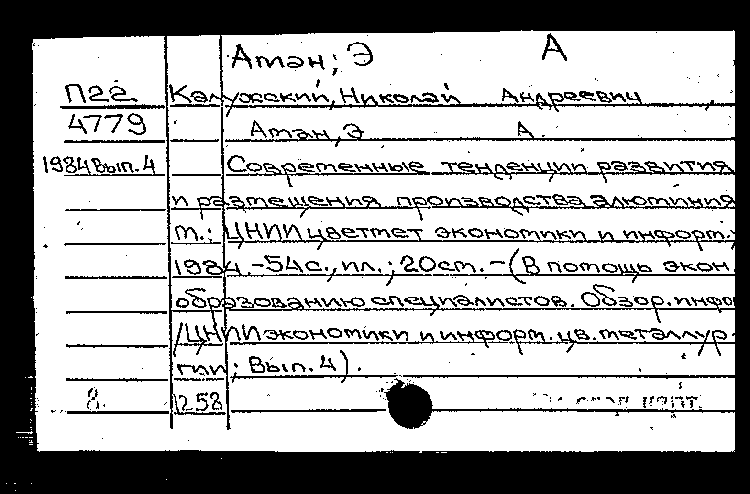 Атэн; Э А
П22 Калужский, Николай Андреевич
4779 Атэн, Э А.
1984 Вып. 4 Современные тенденции развития
и размещения производства алюминия
М.: ЦНИИцветмет экономики и информ.,
1984. - 54 с., ил.; 20 см. - (В помощь экон.
образованию специалистов. Обзор. инфо
/ЦНИИ экономики и информ. цв. металлур-
гии; Вып. 4).
8. 1258